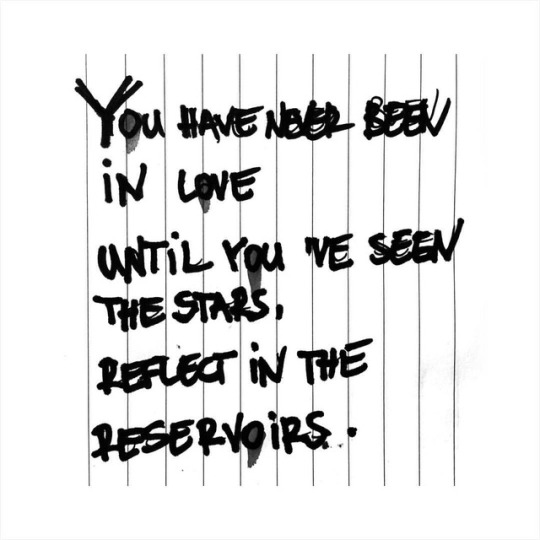 YOU HAVE NEVER BEEN
iN LOVE
UNTiL YOU 'VE SEEN
THE STARS,
REFLECT iN THE
RESERVOiRS.